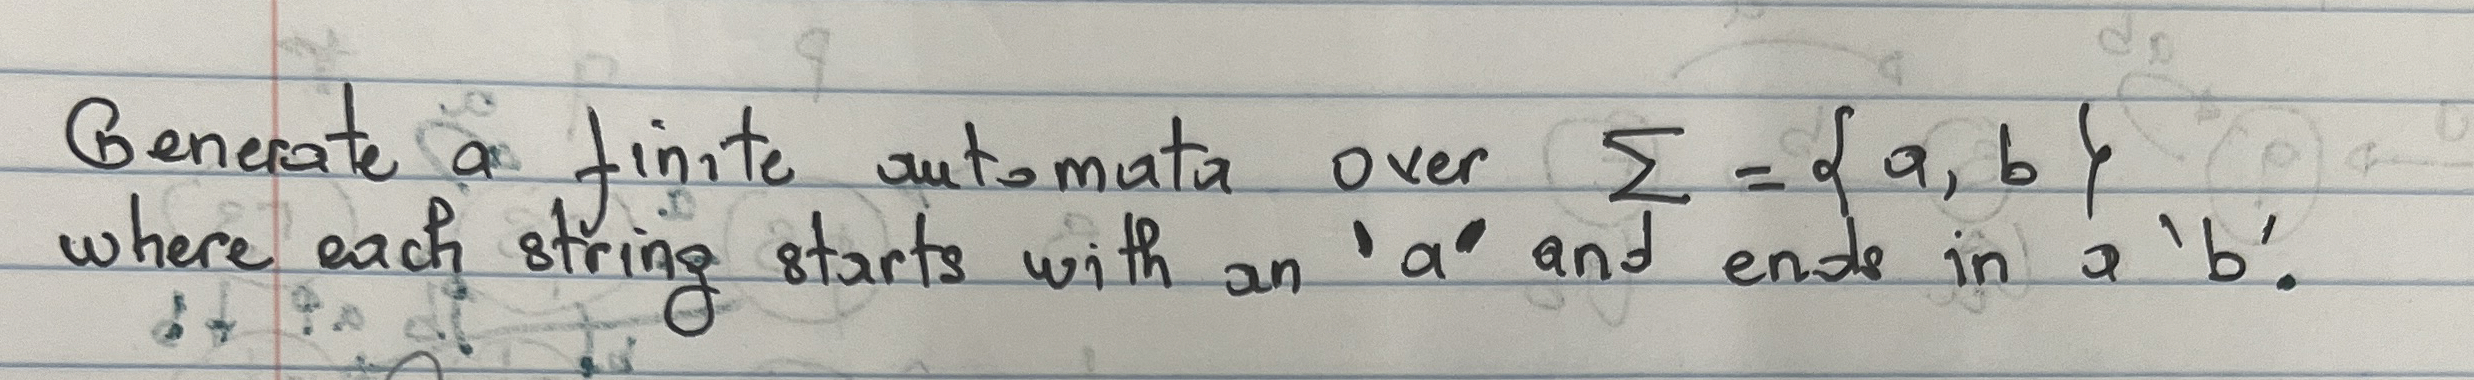 Generate a finite automata over Σ = { a, b }
where each string starts with an 'a' and ends in a 'b'.